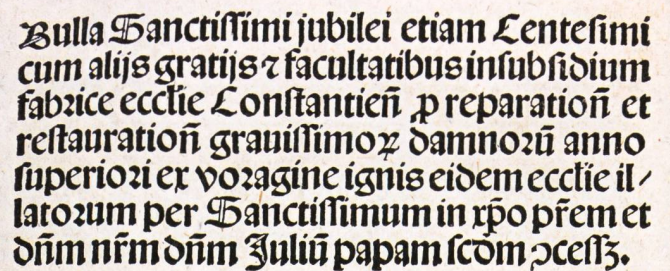 Bulla Sanctiſſimi jubilei etiam Centeſimi
cum alijs gratijs ⁊ facultatibus inſubſidium
fabꝛice eccłie Conſtantieñ ꝓ reparationñ et
reſtaurationñ grauiſſimoꝝ damnoꝛū anno
ſuperioꝛi ex voꝛagine ignis eidem eccłie il⸗
latoꝛum per Sanctiſſimum in xp̄o pr̄em et
dn̄m nr̄m dn̄m Juliū papam ſcd̄m ↄceſſꝫ.